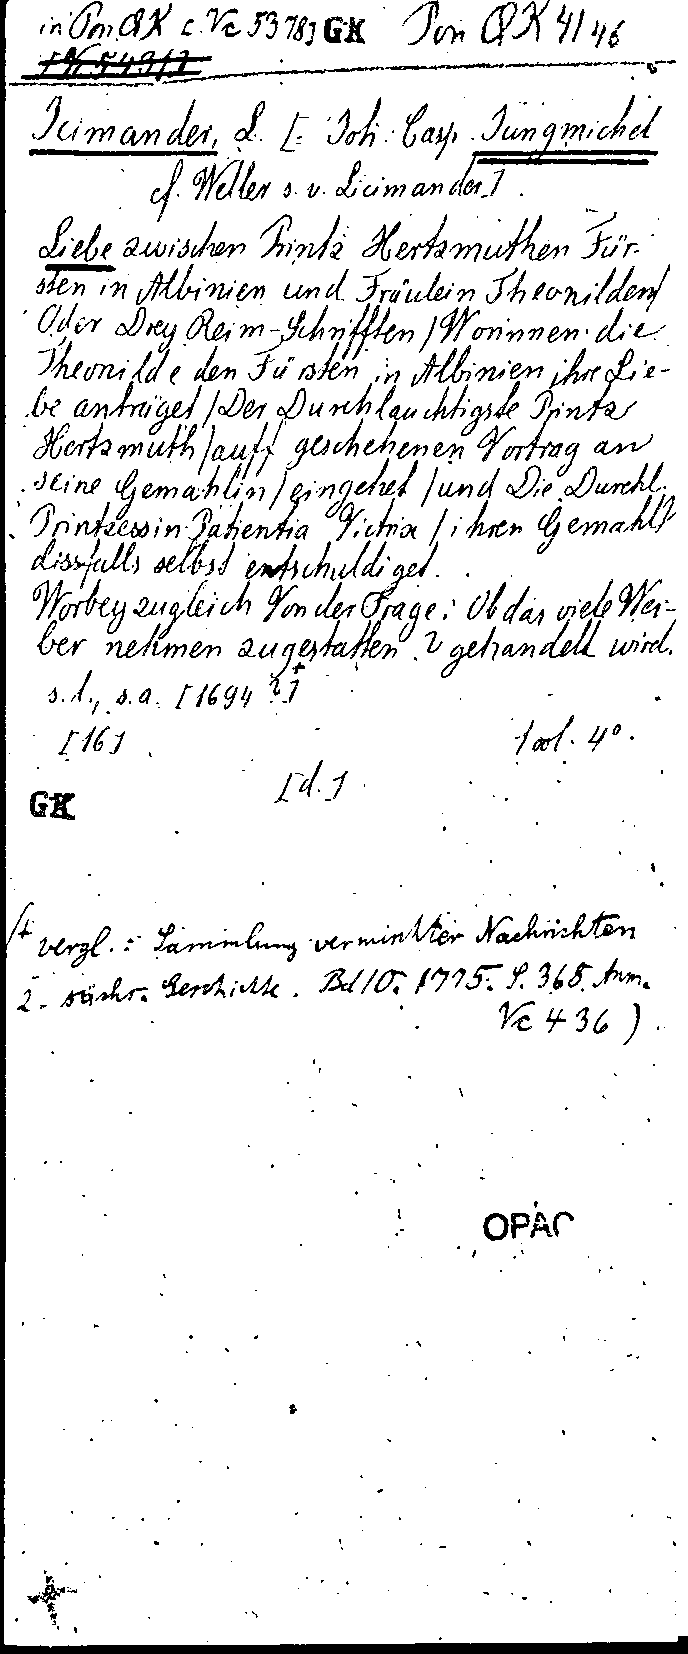 in Pon QK c. Vc 5378] GK Pon QK 41 46
Icimander, L. [= Joh. Casp. Jungmichel
cf. Weller s. v. Licimander.]
Liebe zwischen Printz Hertzmuthen Für-
sten in Albinien und Fräulein Theonilden/
Oder Drey Reim-Schrifften / Worinnen die
Theonilde den Fürsten in Albinien ihre Lie-
be anträget / Der Durchlauchtigste Printz
Hertzmuth / auff geschehenen Vortrag an
seine Gemahlin / eingehet / und Die Durchl.
Printzessin Patientia Victrix / ihren Gemahl
dissfalls selbst entschuldiget.
Worbey zugleich Von der Frage: Ob das viele Wei-
ber nehmen zugestatten? gehandelt wird.
s.l., s.a. [1694 ?]+
[16] 4°.
[d.]
GK
(+ vergl.: Sammlung vermischter Nachrichten
z. sächs. Geschichte. Bd 10. 1775. S. 368. Anm.
Vc 436)
OPAC